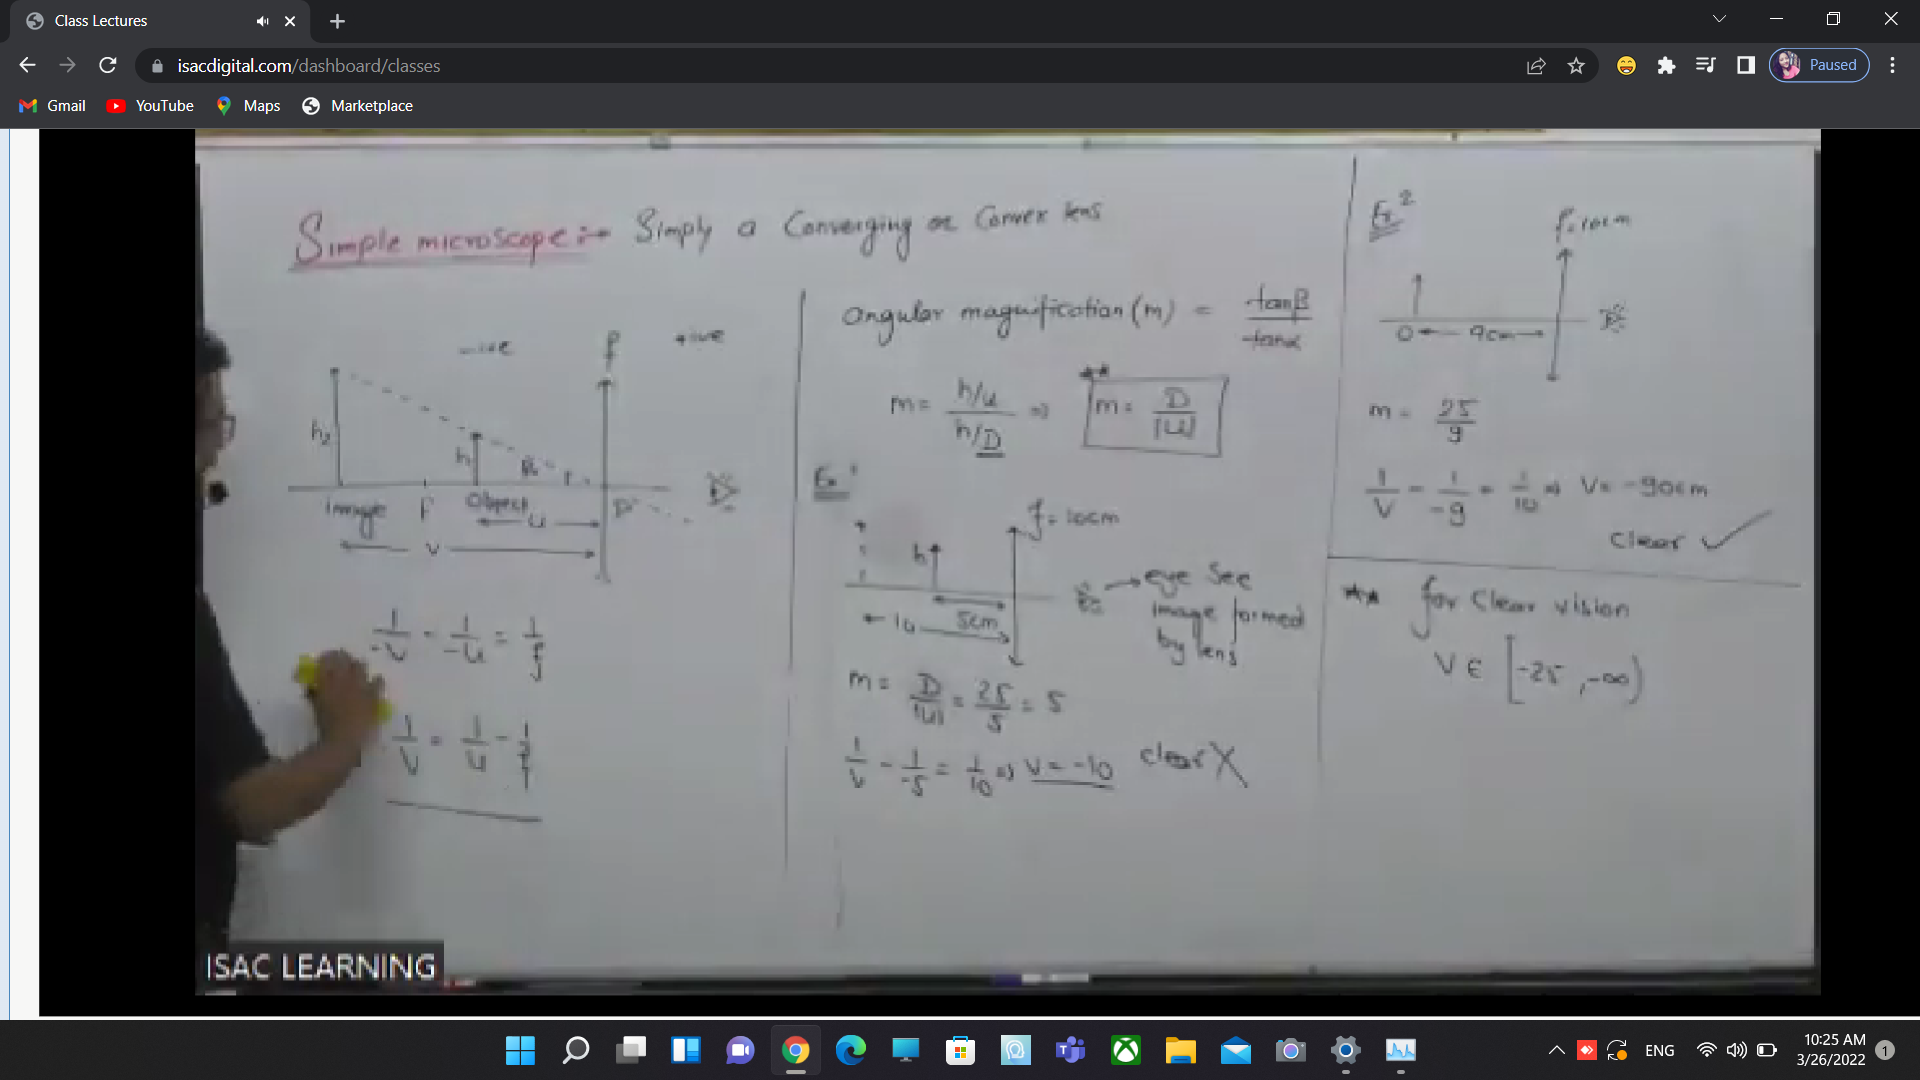 Class Lectures
isacdigital.com/dashboard/classes
Paused
Gmail
YouTube
Maps
Marketplace
Simple microscope:→ Simply a Converging or Convex lens
-ive
f
+ive
h₂
h
β
Image
F
Object
u
D
v
1/-v - 1/-u = 1/f
1/v = 1/u - 1/f
Angular magnification (m) = tanβ/tanα
m = h/u / h/D ⇒ ** m = D/|u|
Ex 1
f = 10cm
h
5cm
10
→ eye See
image formed
by lens
m = D/|u| = 25/5 = 5
1/v - 1/-5 = 1/10 ⇒ v = -10 clear X
Ex 2
f=10cm
O
9cm
m = 25/9
1/v - 1/-9 = 1/10 ⇒ v = -90cm
clear ✓
** for Clear vision
V ∈ [-25, -∞)
ISAC LEARNING
ENG
10:25 AM
3/26/2022
1